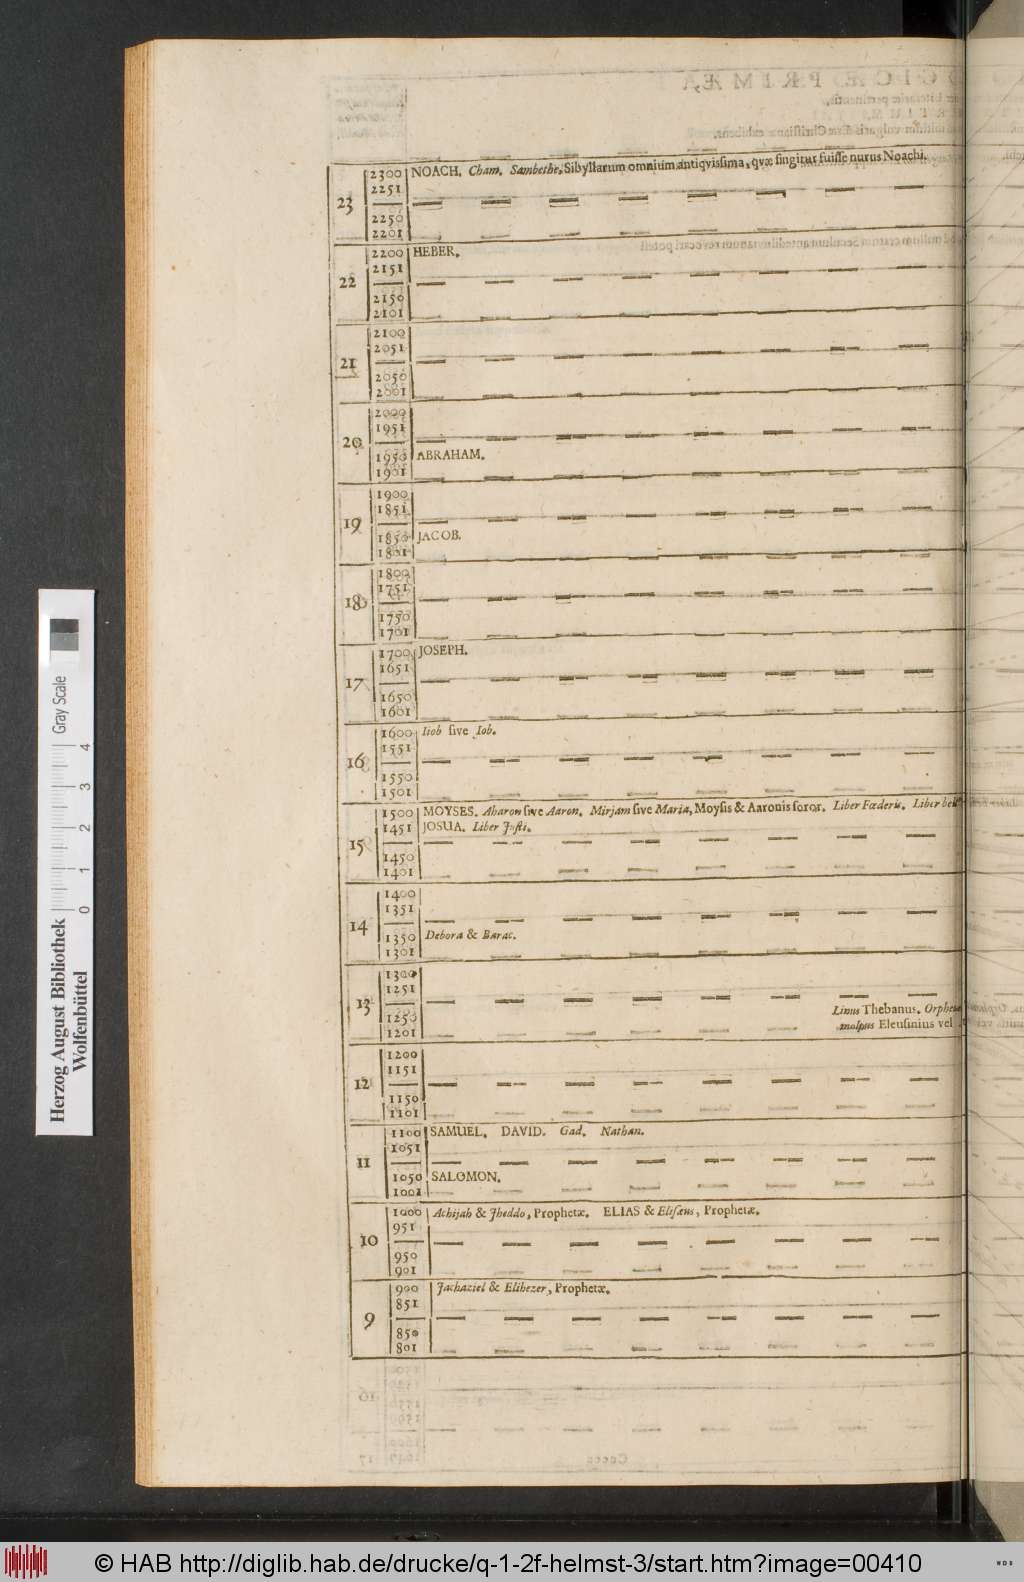 23
2300 NOACH. Cham. Sambethe, Sibyllarum omnium antiqvissima, qvæ fingitur fuisse nurus Noachi.
2251
2250
2201
22
2200 HEBER.
2151
2150
2101
21
2100
2051
2050
2001
20
2000
1951
1950 ABRAHAM.
1901
19
1900
1851
1850 JACOB.
1801
18
1800
1751
1750
1701
17
1700 JOSEPH.
1651
1650
1601
16
1600 Iiob sive Iob.
1551
1550
1501
15
1500 MOYSES. Aharon sive Aaron. Mirjam sive Maria, Moysis & Aaronis soror. Liber Fœderis. Liber
1451 JOSUA. Liber Justi.
1450
1401
14
1400
1351
1350 Debora & Barac.
1301
13
1300
1251
1250 Linus Thebanus.
1201 Eleusinius vel
12
1200
1151
1150
1101
11
1100 SAMUEL. DAVID. Gad. Nathan.
1051
1050 SALOMON.
1001
10
1000 Achijah & Jheddo, Prophetæ. ELIAS & Elisæus, Prophetæ.
951
950
901
9
900 Jachaziel & Elihezer, Prophetæ.
851
850
801
Herzog August Bibliothek
Wolfenbüttel
0 1 2 3 4
Gray Scale
© HAB http://diglib.hab.de/drucke/q-1-2f-helmst-3/start.htm?image=00410
WDB